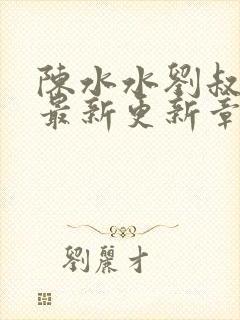 陳水水劉叔
最新更新章
劉麗才